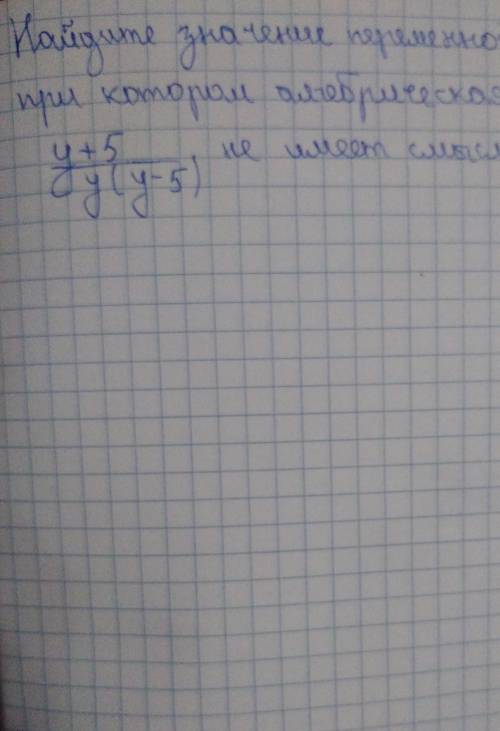 Найдите значение переменно
при котором алгебраическая
y+5
y(y-5) не имеет смысл